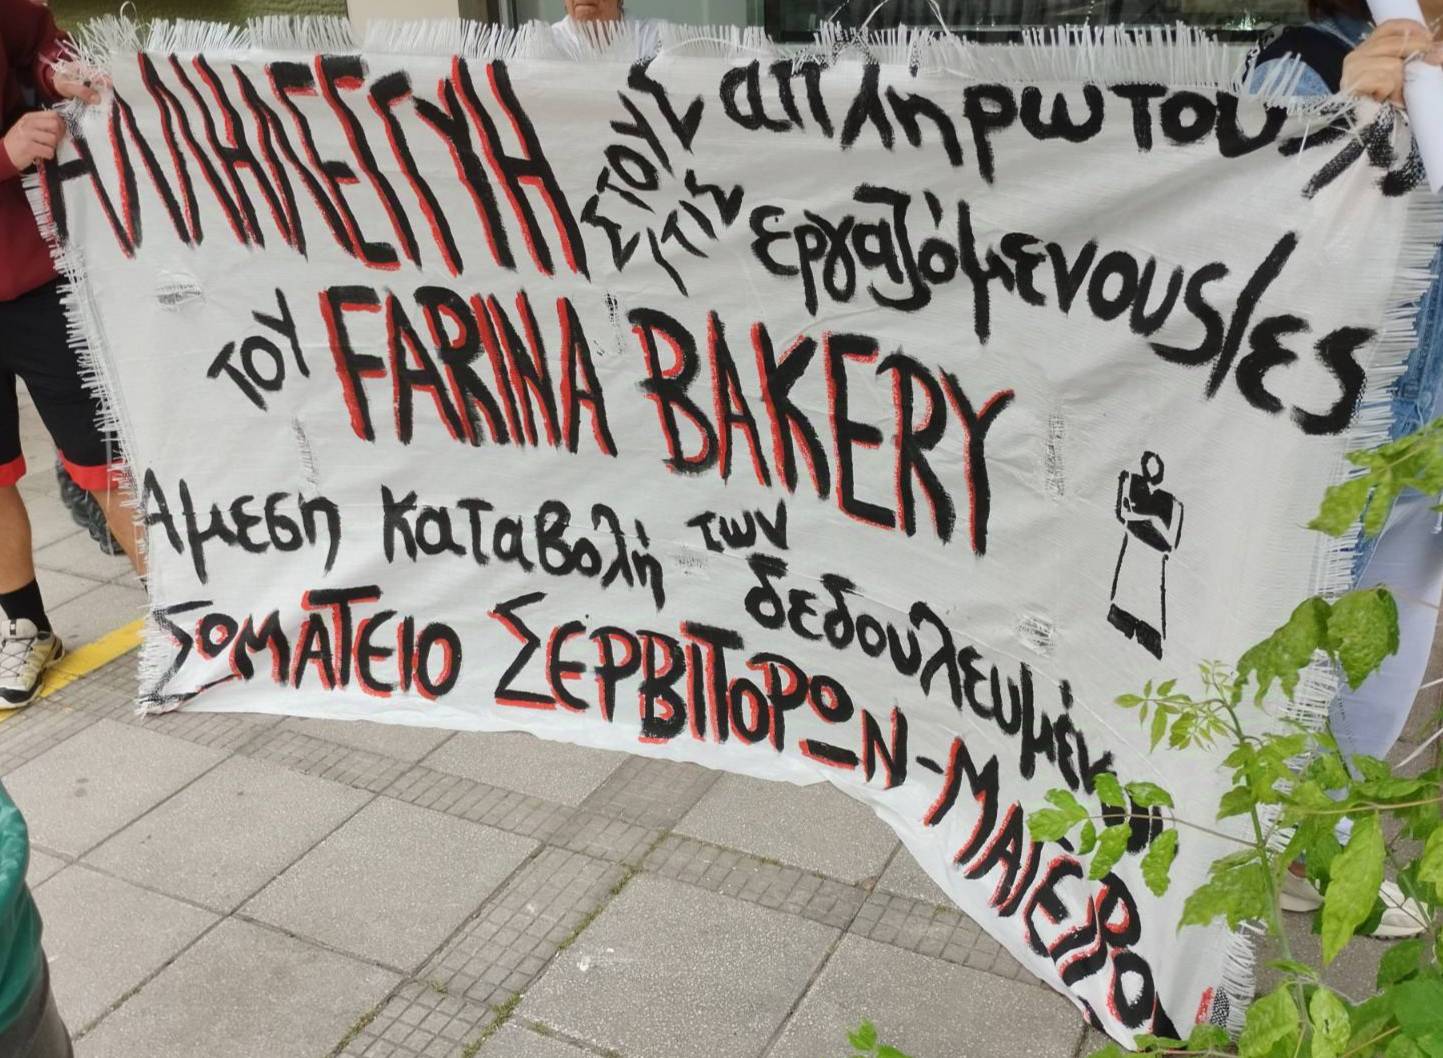 ΑΛΛΗΛΕΓΓΥΗ ΣΤΟΥΣ ΣΤΙΣ απλήρωτους
εργαζόμενους/ες
ΤΟΥ FARINA BAKERY
Αμεση καταβολή των δεδουλευμένων
ΣΟΜΑΤΕΙΟ ΣΕΡΒΙΤΟΡΩΝ-ΜΑΓΕΙΡΩ